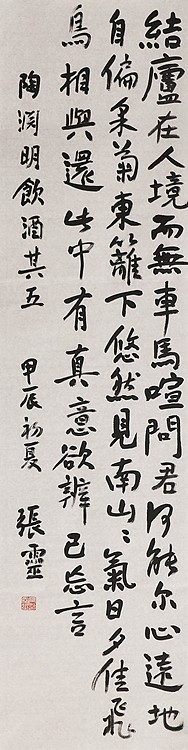 結廬在人境而無車馬喧問君何能尔心遠地
自偏采菊東籬下悠然見南山〻氣日夕佳飛
鳥相與還此中有真意欲辨已忘言
陶渊明飲酒其五 甲辰初夏 張靈